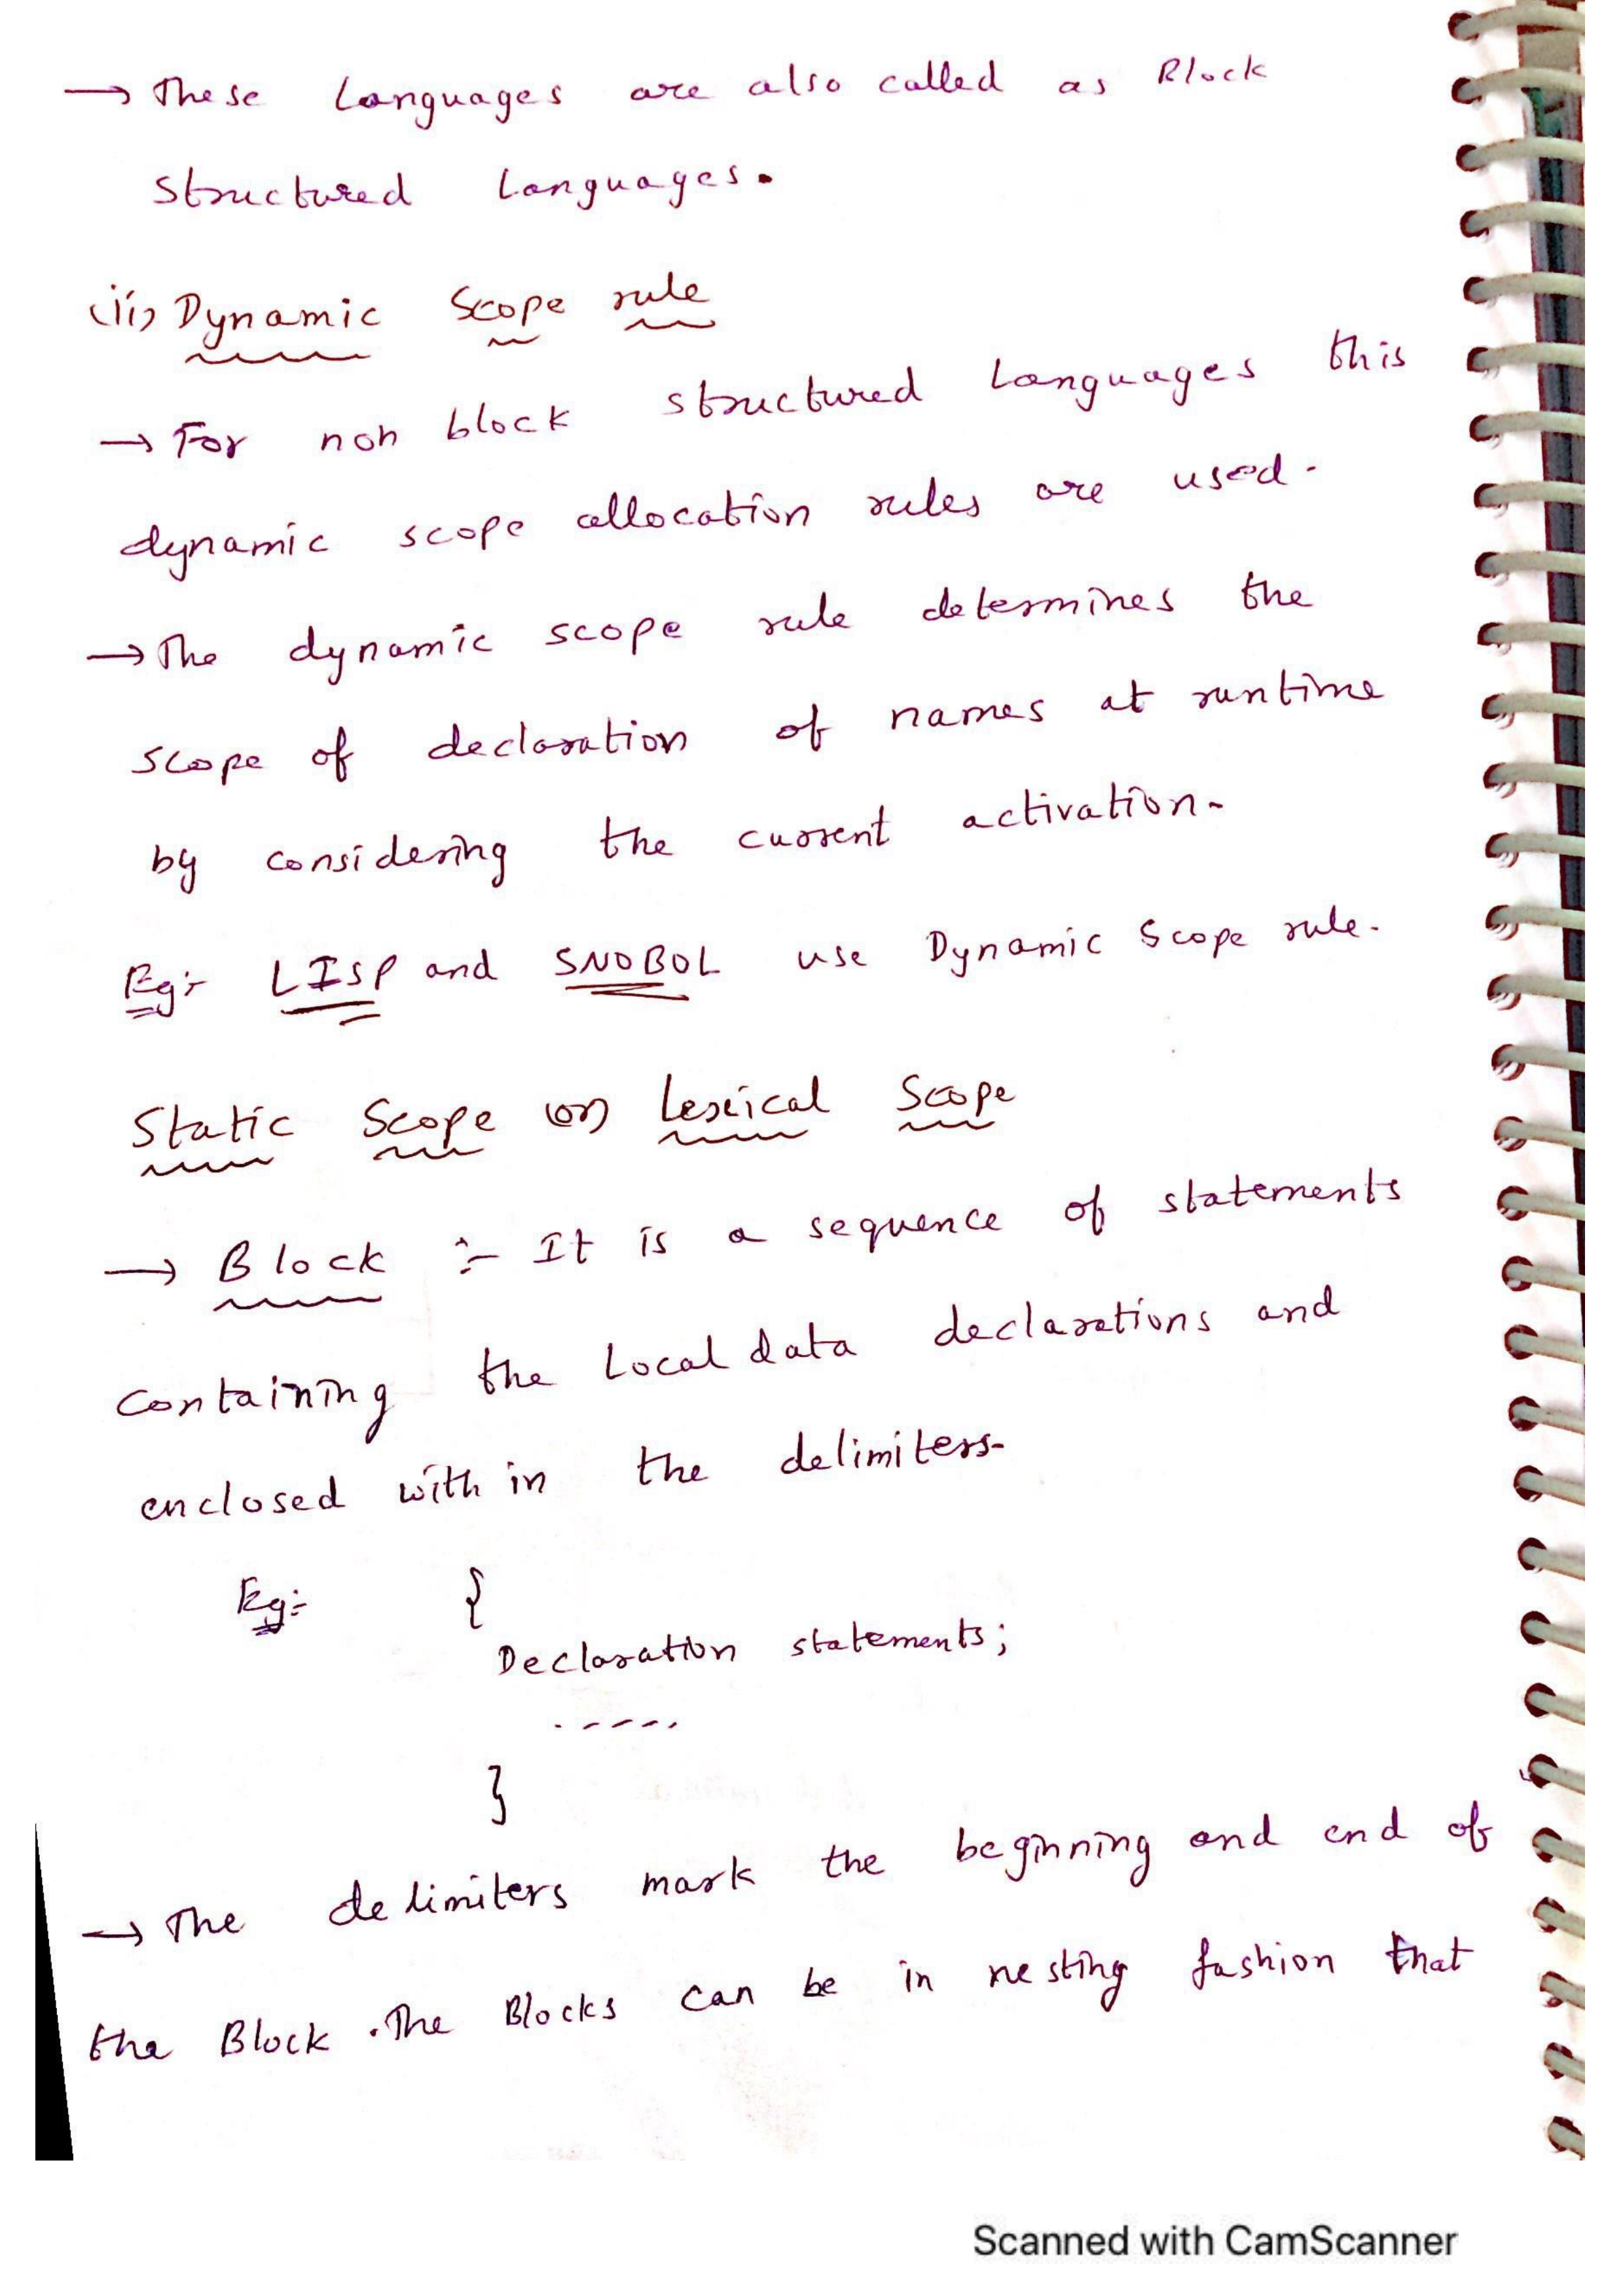 → These Languages are also called as Block
structured Languages.
(ii) Dynamic Scope rule
→ For non block structured Languages this
dynamic scope allocation rules are used.
→ The dynamic scope rule determines the
scope of declaration of names at runtime
by considering the current activation.
Eg:- LISP and SNOBOL use Dynamic Scope rule.
Static Scope (or) Lexical Scope
→ Block :- It is a sequence of statements
containing the Local data declarations and
enclosed with in the delimiters.
Eg:- {
Declaration statements;
. - - - - .
}
→ The delimiters mark the beginning and end of
the Block. The Blocks can be in nesting fashion that
Scanned with CamScanner